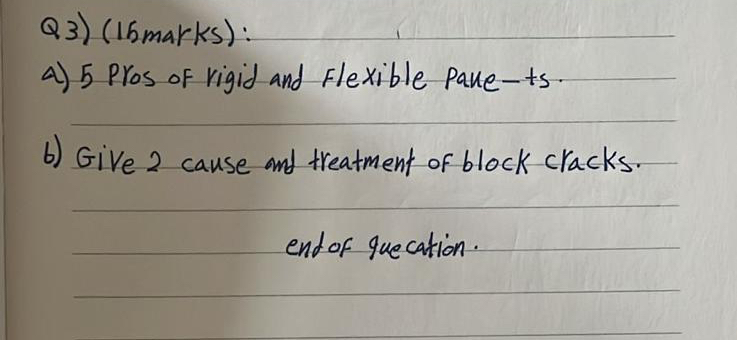 Q3) (15marks):
a) 5 Pros of rigid and Flexible Pave-ts.
b) Give 2 cause and treatment of block cracks.
end of quecation.